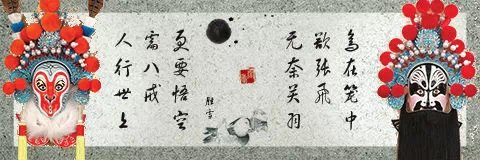 鸟在笼中
欲张飞
无奈关羽
人行世上
需八戒
更要悟空